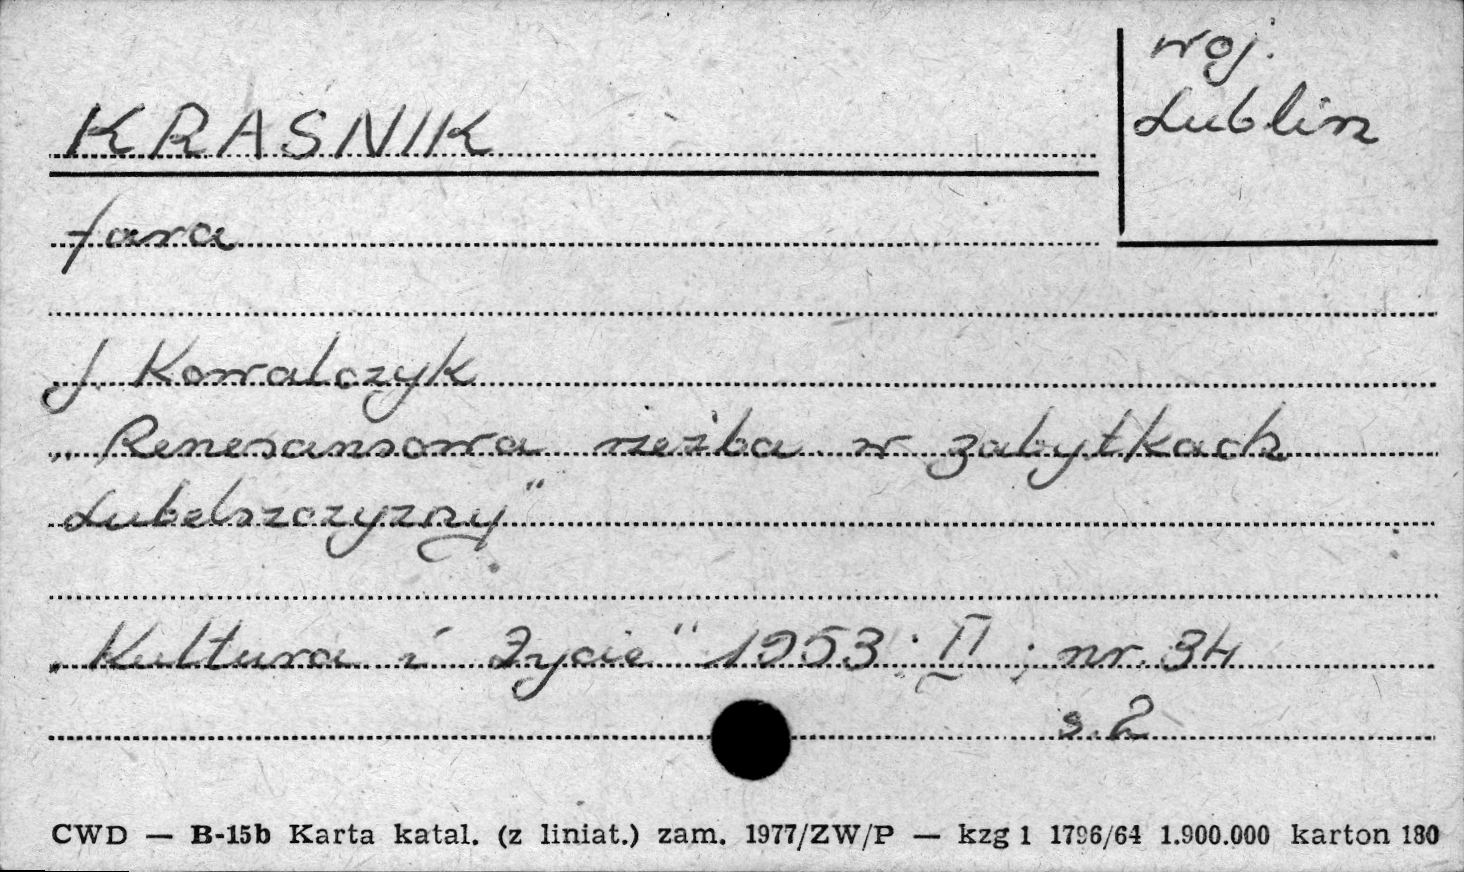 woj.
Lublin
KRASNIK
fara
J. Kowalczyk
„Renesansowa rzeźba w zabytkach
Lubelszczyzny"
„Kultura i Życie" 1953 : II ; nr. 34
s. 2
CWD — B-15b Karta katal. (z liniat.) zam. 1977/ZW/P — kzg 1 1796/64 1.900.000 karton 180